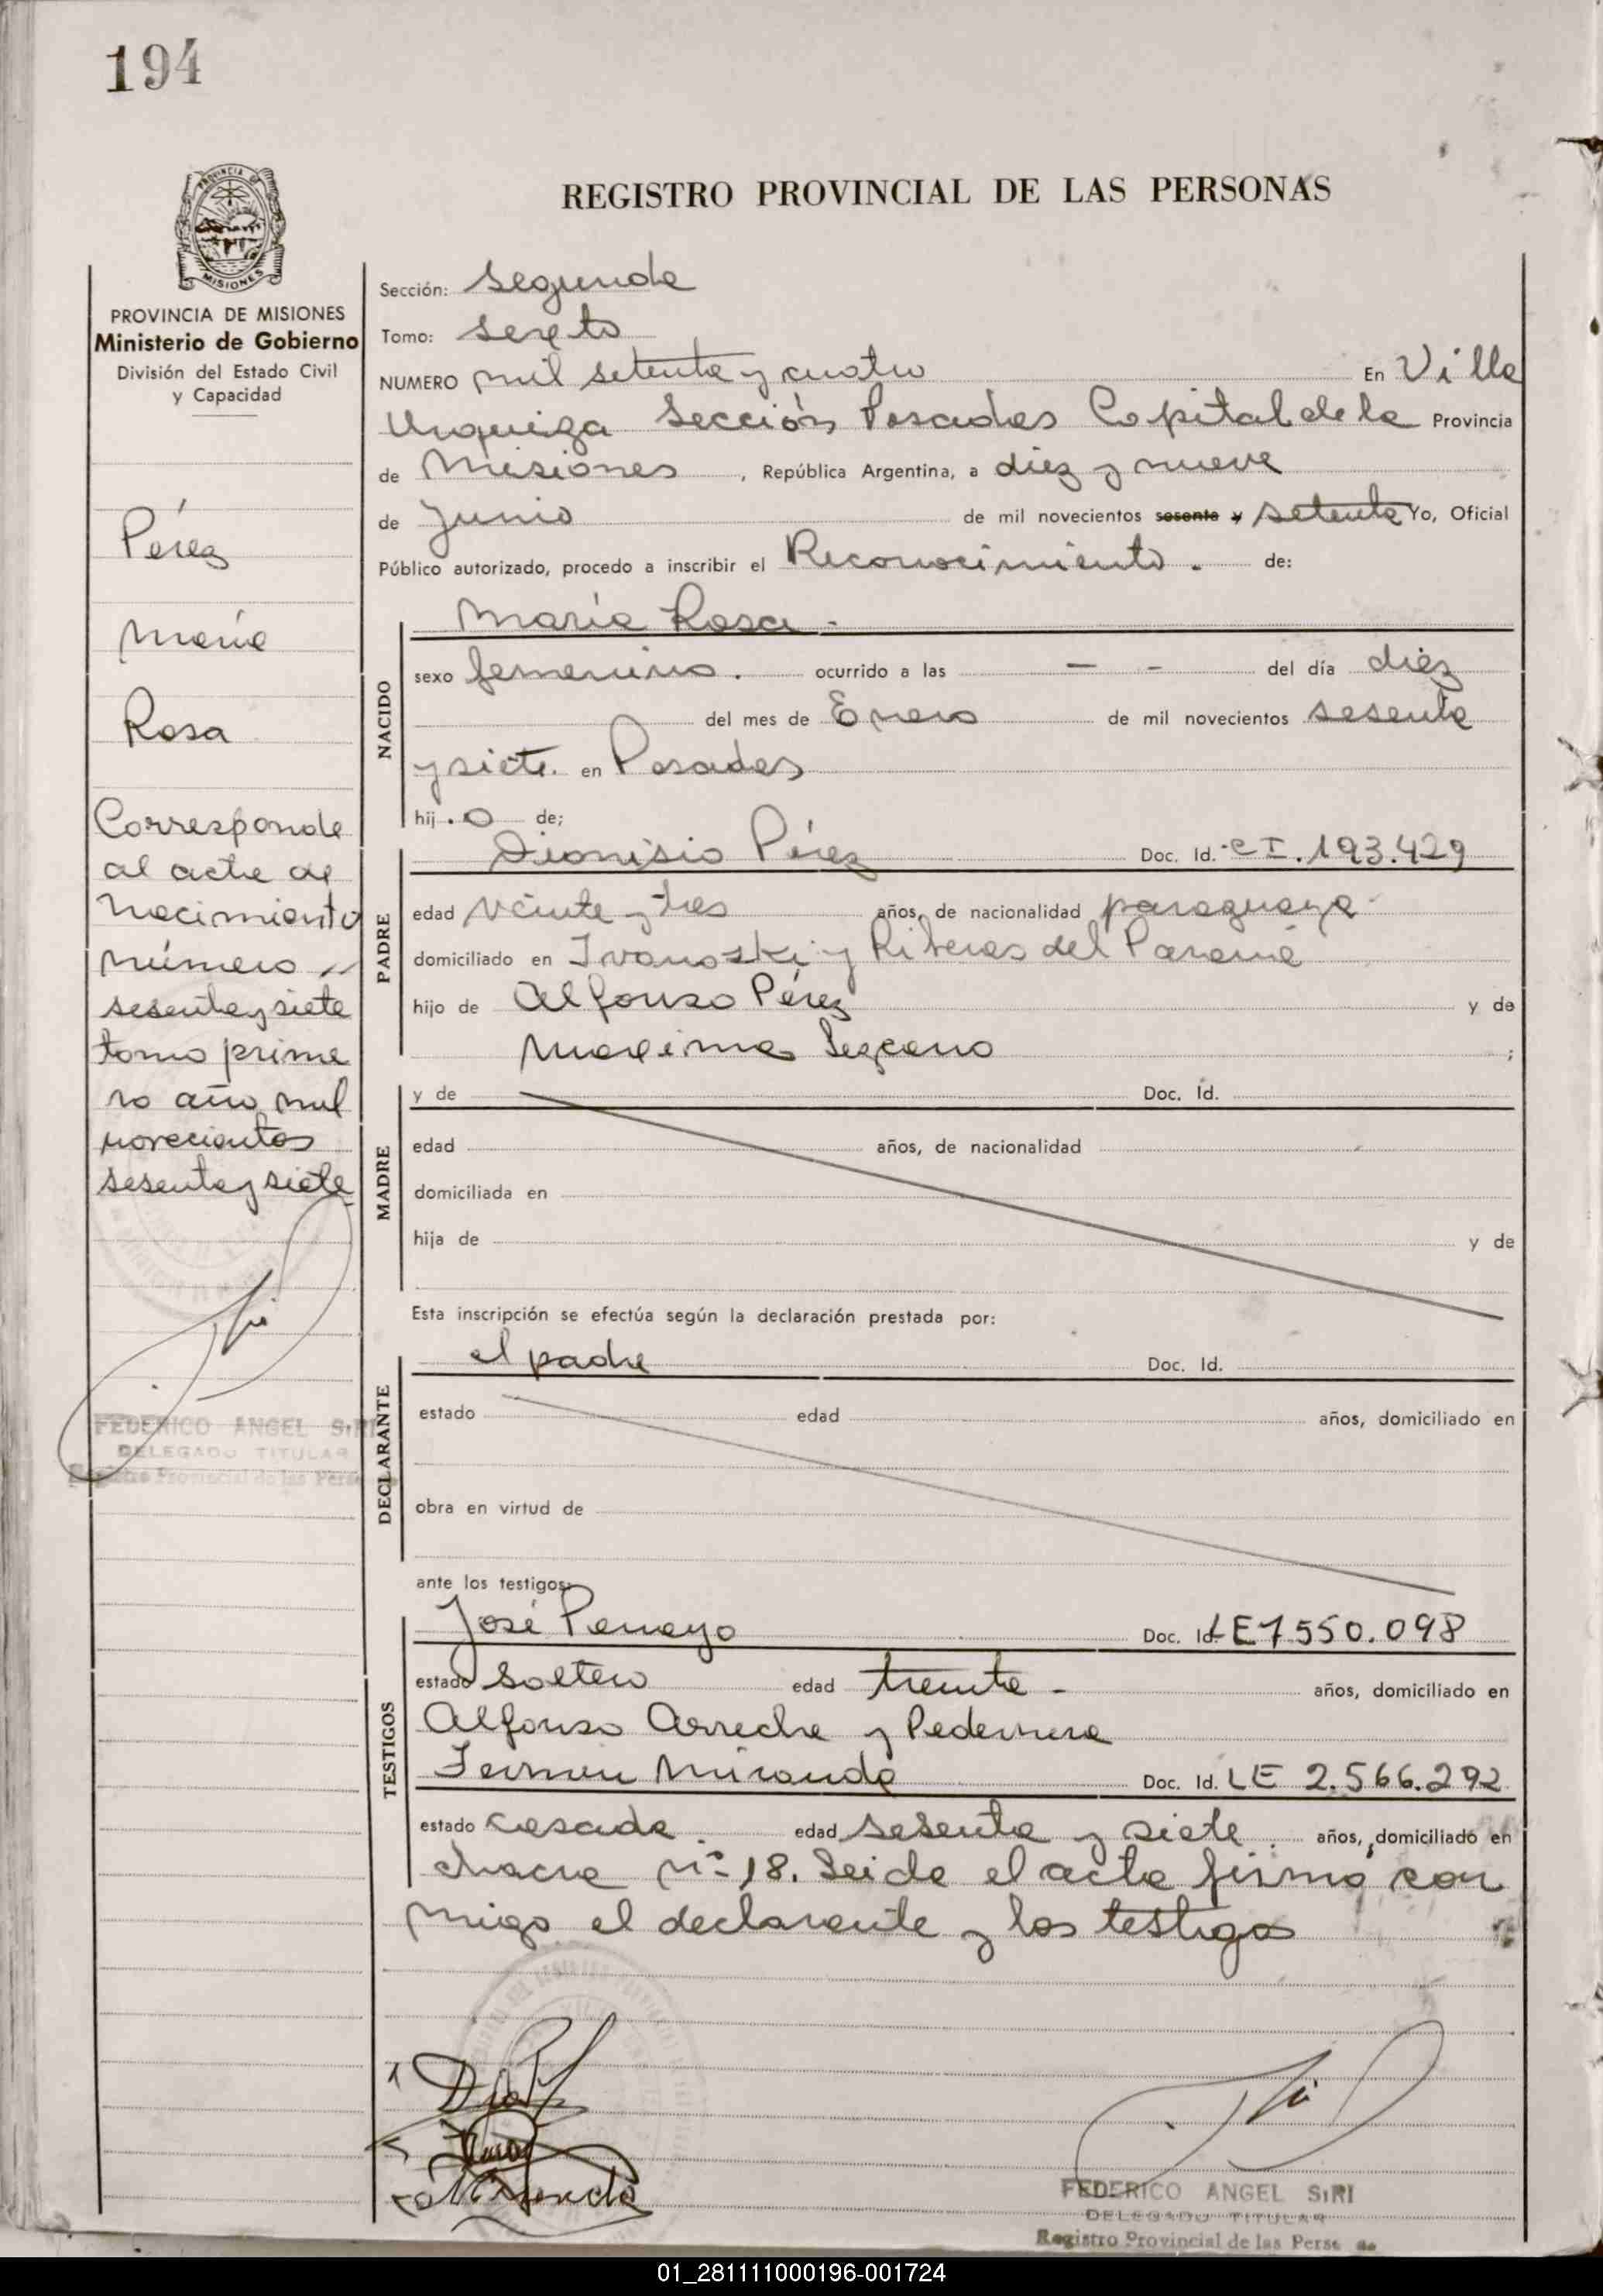 194
REGISTRO PROVINCIAL DE LAS PERSONAS
PROVINCIA DE MISIONES
Ministerio de Gobierno
División del Estado Civil
y Capacidad
Pérez
María
Rosa
Corresponde
al acta de
nacimiento
número
sesenta y siete
tomo prime
ro año mil
novecientos
sesenta y siete
FEDERICO ANGEL SIRI
DELEGADO TITULAR
Registro Provincial de las Perso
Sección: segunda
Tomo: sexto
NUMERO mil setenta y cuatro En Villa
Urquiza Sección Posadas Capital de la Provincia
de Misiones, República Argentina, a diez y nueve
de Junio de mil novecientos sesenta y setenta Yo, Oficial
Público autorizado, procedo a inscribir el Reconocimiento. de:
NACIDO
María Rosa.-
sexo femenino. ocurrido a las — - del día diez
del mes de Enero de mil novecientos sesenta
y siete. en Posadas
hij.o de;
PADRE
Dionisio Pérez Doc. Id. CI. 193.429
edad veinte y tres años, de nacionalidad paraguaya
domiciliado en Ivanoski y Riberas del Paraná
hijo de Alfonso Pérez y de
Maxima Lezcano ;
MADRE
y de Doc. Id.
edad años, de nacionalidad
domiciliada en
hija de y de
Esta inscripción se efectúa según la declaración prestada por:
DECLARANTE
el padre Doc. Id.
estado edad años, domiciliado en
obra en virtud de
ante los testigos:
TESTIGOS
José Doc. Id. LE 7.550.098
estado soltero edad treinta - años, domiciliado en
Alfonso Arreche y Pedernera
Fermin Miranda Doc. Id. LE 2.566.292
estado casado. edad sesenta y siete. años, domiciliado en
chacra nº 18. Leida el acta firma con
migo el declarante y los testigos
FEDERICO ANGEL SIRI
DELEGADO TITULAR
Registro Provincial de las Perso
01_281111000196-001724